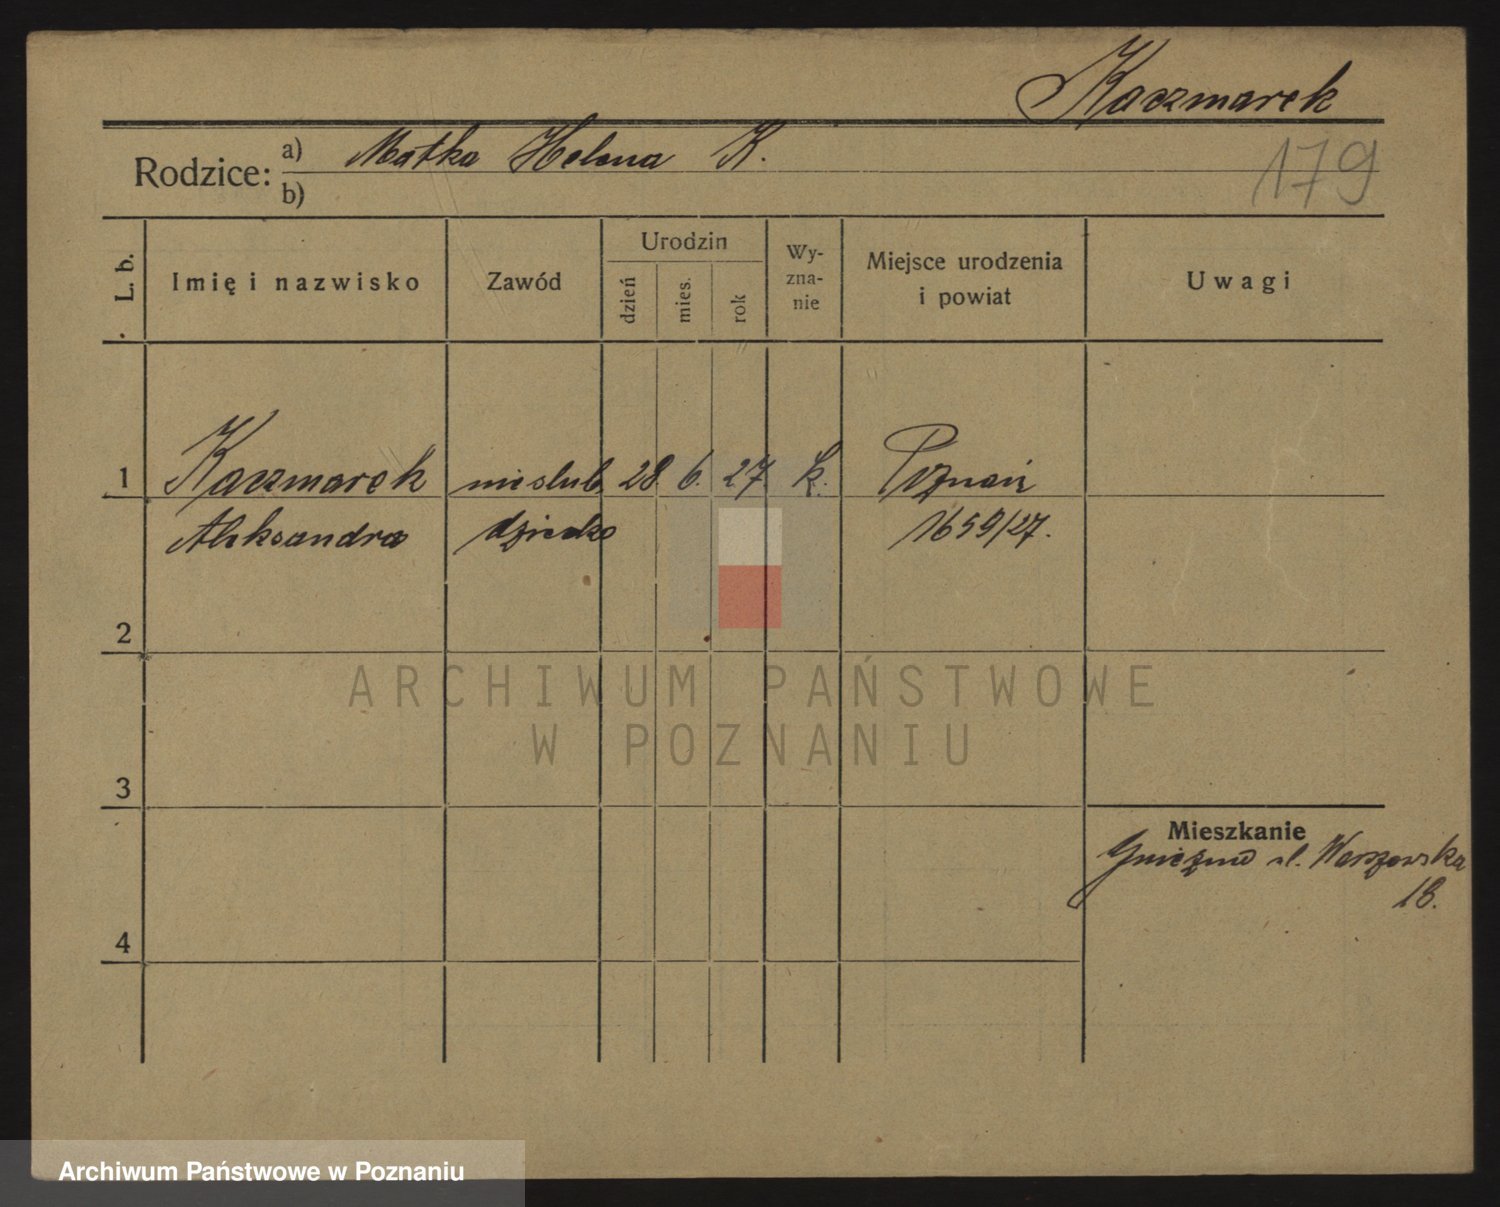 Kaczmarek
Rodzice: a) Matka Helena K.
179
b)
L. b.
Imię i nazwisko
Zawód
Urodzin
dzień
mies.
rok
Wy-
zna-
nie
Miejsce urodzenia
i powiat
Uwagi
1 Kaczmarek nieslub. 28. 6. 27. k. Poznań
Aleksandra dziecko 1659/27.
2
ARCHIWUM PAŃSTWOWE
W POZNANIU
3
Mieszkanie
Gniezno ul. Warszawska
18.
4
Archiwum Państwowe w Poznaniu